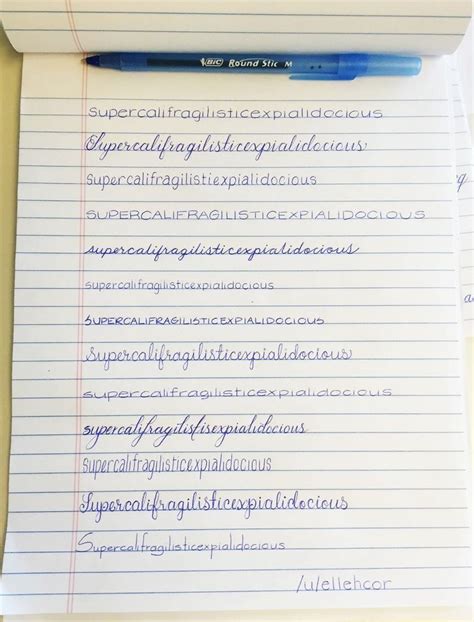 BIC Round Stic M
supercalifragilisticexpialidocious
Supercalifragilisticexpialidocious
Supercalifragilistiexpialidocious
SUPERCALIFRAGILISTICEXPIALIDOCIOUS
supercalifragilisticexpialidocious
supercalifragilisticexpialidocious
SUPERCALIFRAGILISTICEXPIALIDOCIOUS
Supercalifragilisticexpialidocious
supercalifragilisticexpialidocious
supercalifragilistisexpialidocious
supercalifragilisticexpialidocious
Supercalifragilisticexpialidocious
Supercalifragilisticexpialidocious
/u/ellehcor